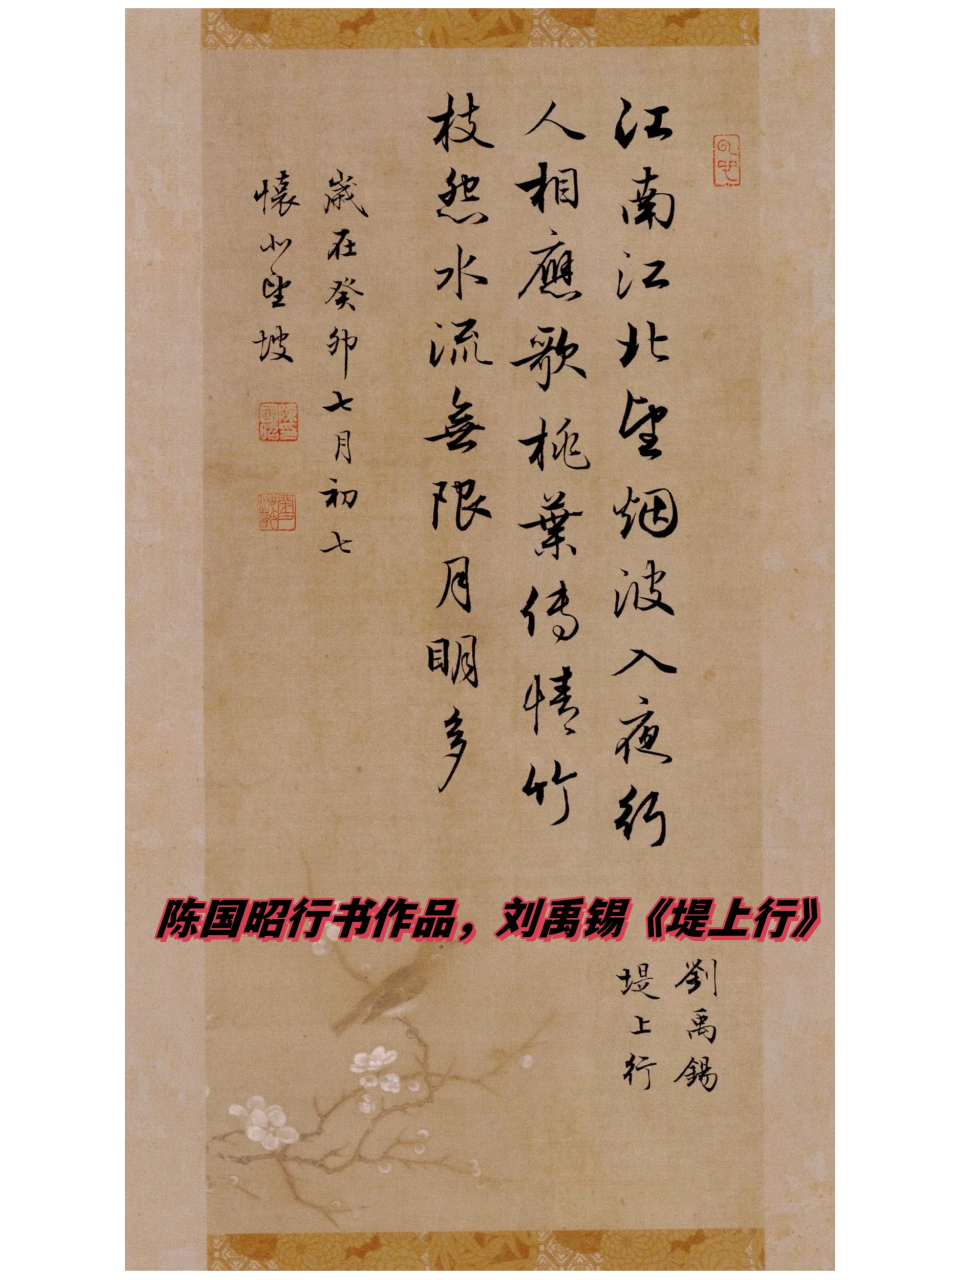 江南江北望烟波入夜行
人相應歌桃葉傳情竹
枝怨水流無限月明多
歲在癸卯七月初七
懷小望坡
陈国昭行书作品，刘禹锡《堤上行》
劉禹錫
堤上行